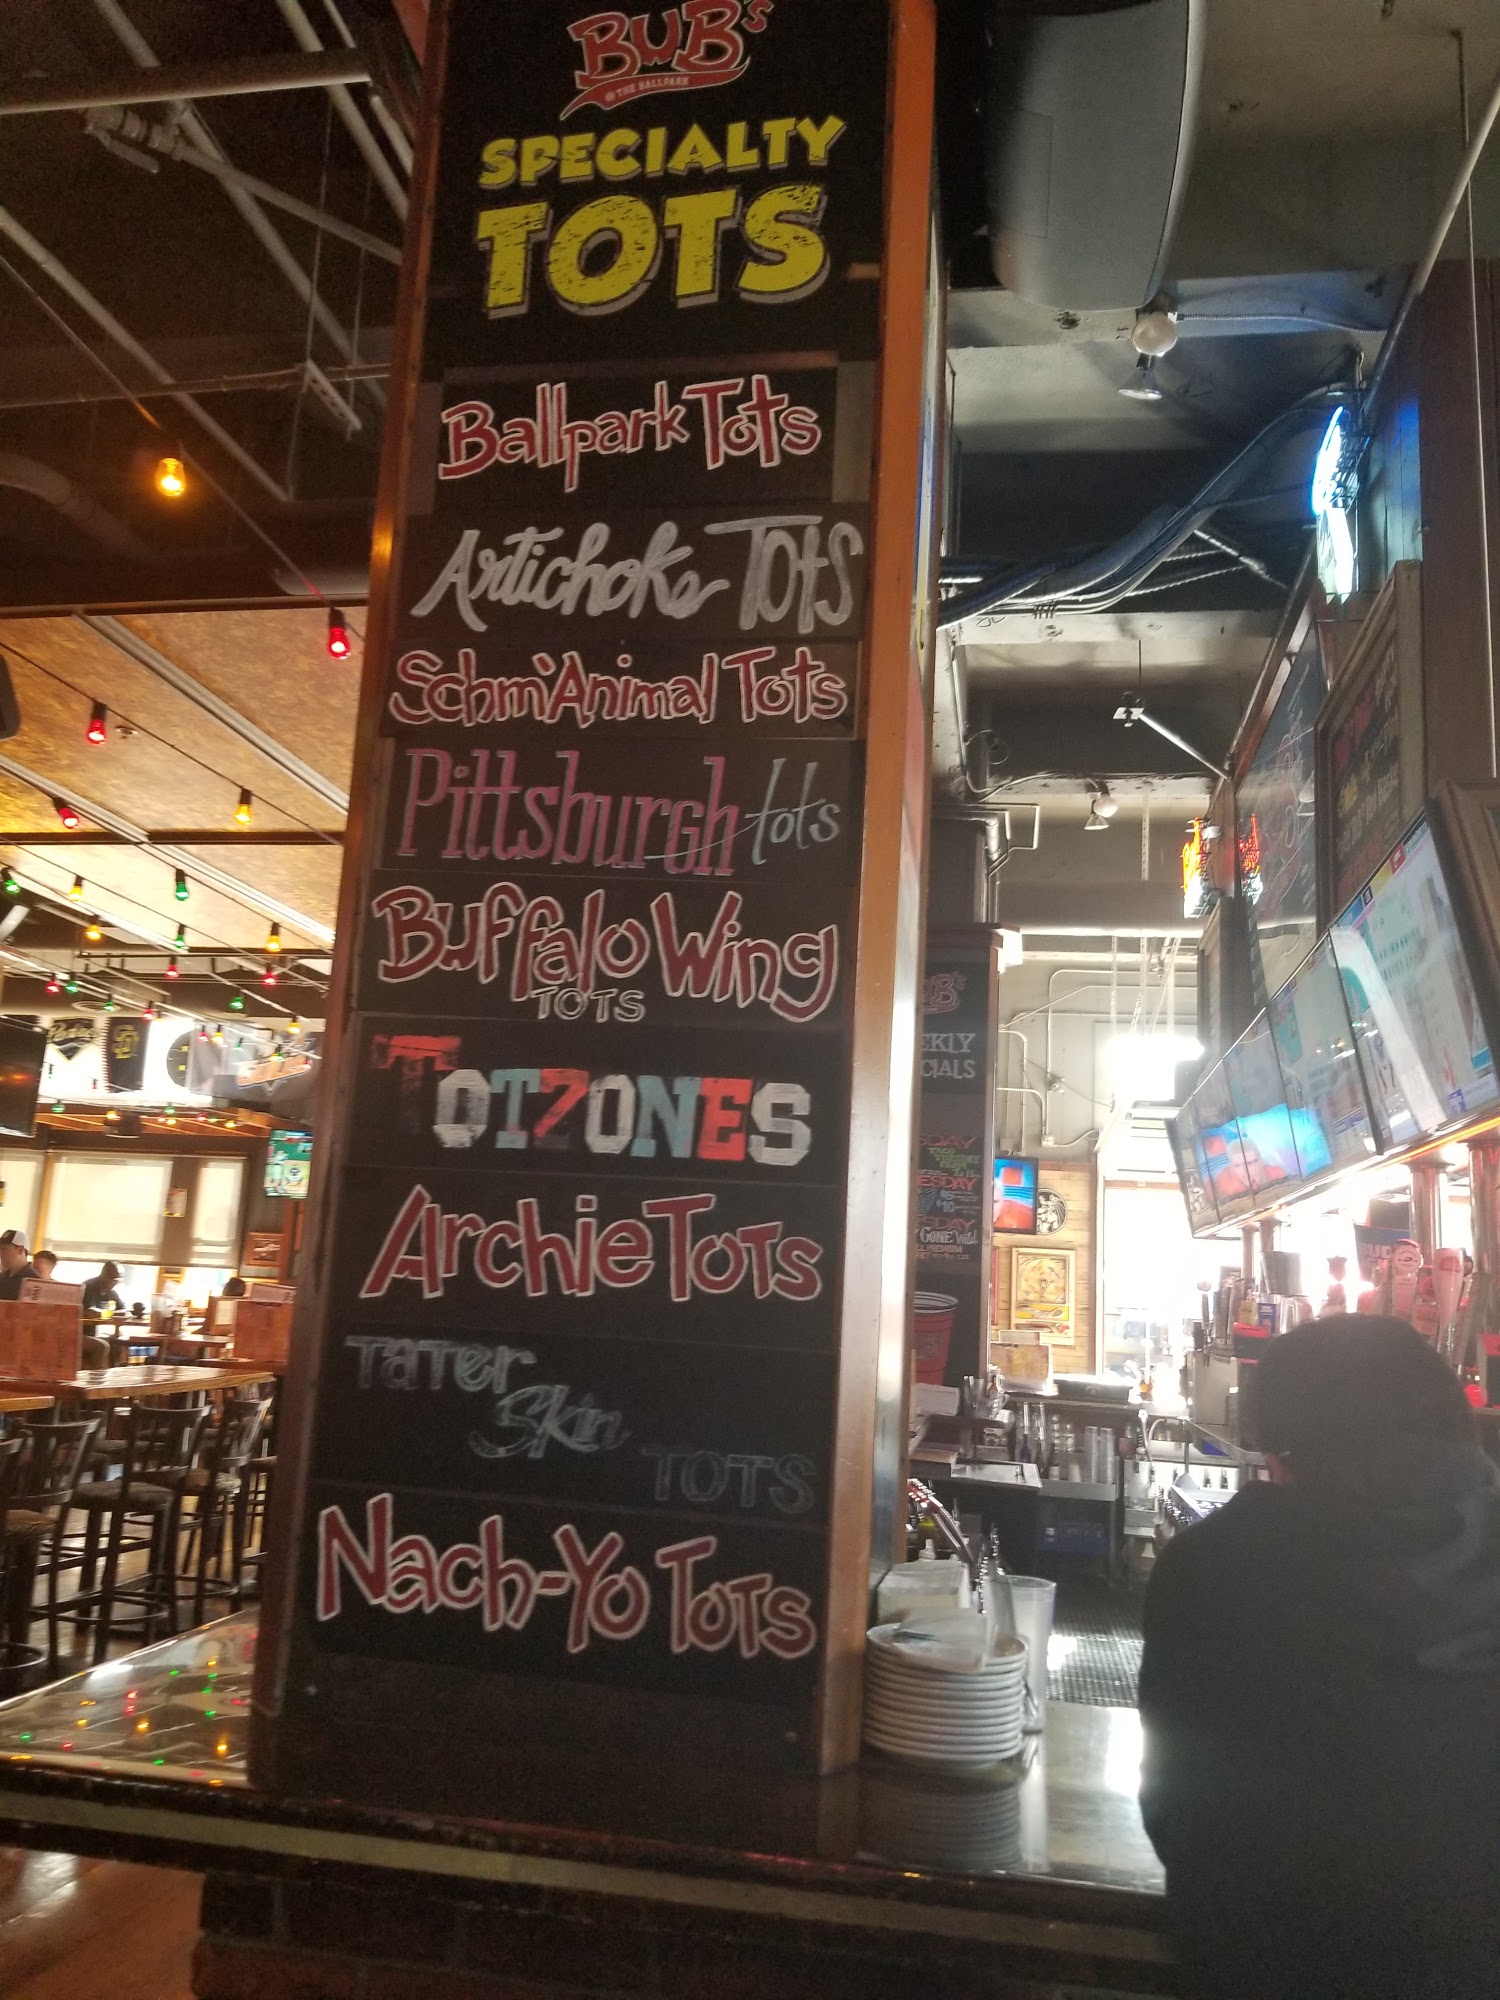 BUB's
@ THE BALLPARK
SPECIALTY
TOTS
Ballpark Tots
Artichoke Tots
Schm'Animal Tots
Pittsburgh tots
Buffalo Wing
TOTS
TOTZONES
Archie Tots
Tater
Skin
TOTS
Nach-Yo Tots
Padres
SD
GONE Wild